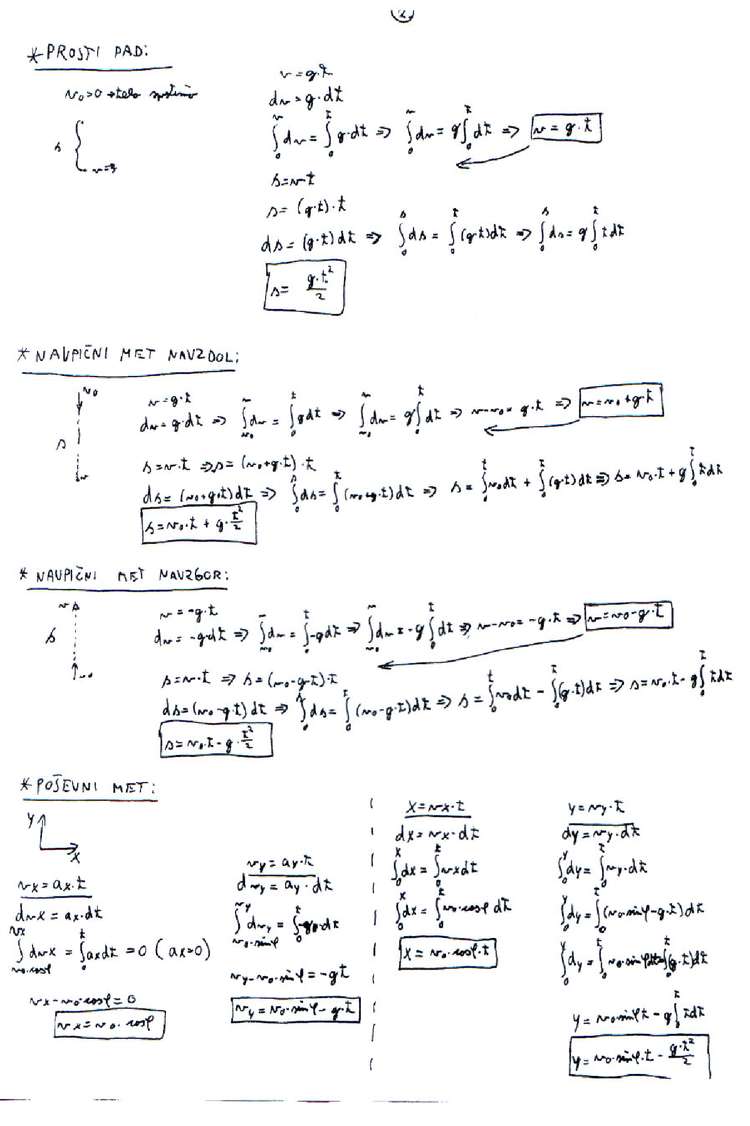 2.
* PROSTI PAD:
v₀=0 → telo spustimo
s
v=?
v=g·t
dv=g·dt
∫₀ᵛ dv = ∫₀ᵗ g·dt => ∫₀ᵛ dv = g∫₀ᵗ dt => v=g·t
s=v·t
s=(g·t)·t
ds=(g·t)dt => ∫₀ˢ ds = ∫₀ᵗ (g·t)dt => ∫₀ˢ ds = g∫₀ᵗ t dt
s= g·t²/2
* NAVPIČNI MET NAVZDOL:
v₀
s
v
v=g·t
dv=g·dt => ∫ᵥ₀ᵛ dv = ∫₀ᵗ g dt => ∫ᵥ₀ᵛ dv = g∫₀ᵗ dt => v-v₀=g·t => v=v₀+g·t
s=v·t => s=(v₀+g·t)·t
ds=(v₀+g·t)dt => ∫₀ˢ ds = ∫₀ᵗ (v₀+g·t)dt => s=∫₀ᵗ v₀dt + ∫₀ᵗ (g·t)dt => s=v₀·t+g∫₀ᵗ t dt
s=v₀·t + g·t²/2
* NAVPIČNI MET NAVZGOR:
v
s
v₀
v=-g·t
dv=-g·dt => ∫ᵥ₀ᵛ dv = ∫₀ᵗ -g dt => ∫ᵥ₀ᵛ dv = -g∫₀ᵗ dt => v-v₀=-g·t => v=v₀-g·t
s=v·t => s=(v₀-g·t)·t
ds=(v₀-g·t)dt => ∫₀ˢ ds = ∫₀ᵗ (v₀-g·t)dt => s=∫₀ᵗ v₀dt - ∫₀ᵗ (g·t)dt => s=v₀·t-g∫₀ᵗ t dt
s=v₀·t - g·t²/2
* POŠEVNI MET:
y
x
vx=ax·t
dvx=ax·dt
∫ dvx (v₀·cosφ, vx) = ∫₀ᵗ ax dt = 0 (ax=0)
vx-v₀·cosφ=0
vx=v₀·cosφ
vy=ay·t
dvy=ay·dt
∫ dvy (v₀·sinφ, vy) = ∫₀ᵗ -g·dt
vy-v₀·sinφ=-gt
vy=v₀·sinφ-g·t
x=vx·t
dx=vx·dt
∫₀ˣ dx = ∫₀ᵗ vx dt
∫₀ˣ dx = ∫₀ᵗ v₀·cosφ dt
x=v₀·cosφ·t
y=vy·t
dy=vy·dt
∫₀ʸ dy = ∫₀ᵗ vy·dt
∫₀ʸ dy = ∫₀ᵗ (v₀·sinφ-g·t)dt
∫₀ʸ dy = ∫₀ᵗ v₀·sinφ dt - ∫₀ᵗ (g·t)dt
y=v₀ sinφ t - g∫₀ᵗ t dt
y=v₀·sinφ·t - g·t²/2